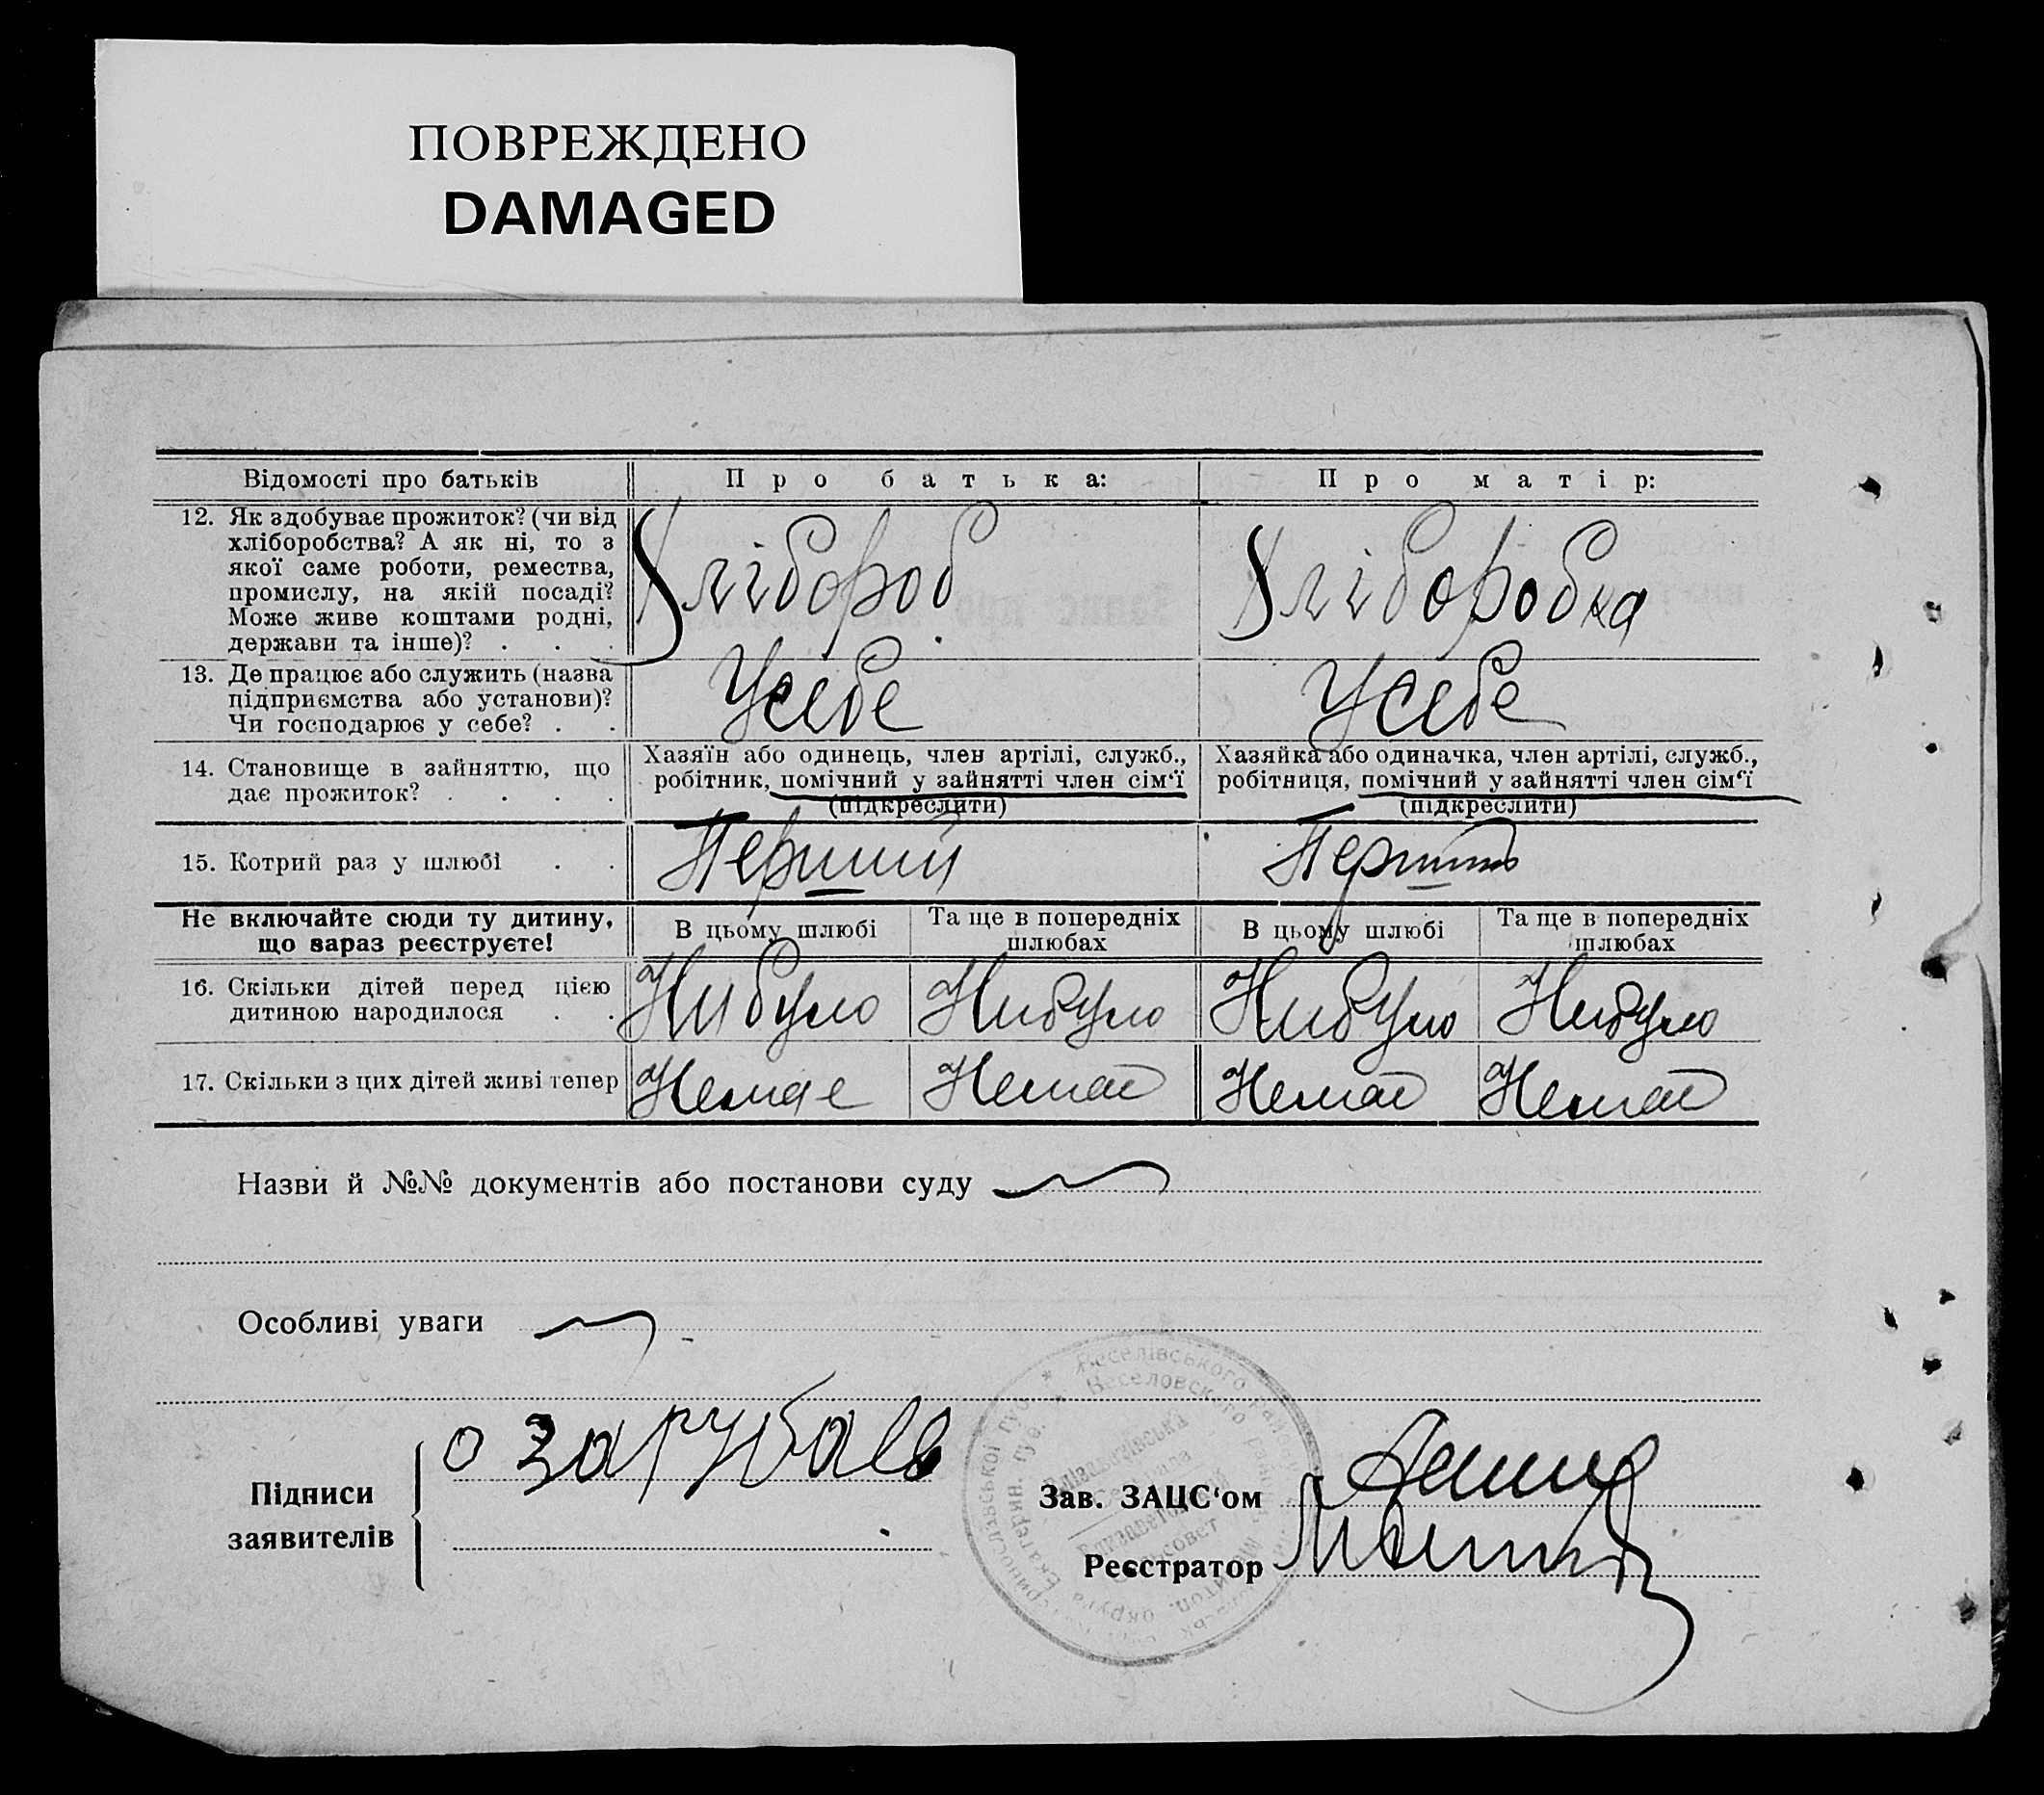 ПОВРЕЖДЕНО
DAMAGED
Відомості про батьків
Про батька:
Про матір:
12. Як здобуває прожиток? (чи від
хліборобства? А як ні, то з
якої саме роботи, ремества,
промислу, на якій посаді?
Може живе коштами родні,
держави та інше)? . . .
Хлібороб
Хліборобка
13. Де працює або служить (назва
підприємства або установи)?
Чи господарює у себе? . .
Усебе
Усебе
14. Становище в зайняттю, що
дає прожиток? . . . .
Хазяїн або одинець, член артілі, служб.,
робітник, помічний у зайнятті член сім‘ї
(підкреслити)
Хазяйка або одиначка, член артілі, служб.,
робітниця, помічний у зайнятті член сім‘ї
(підкреслити)
15. Котрий раз у шлюбі . .
Перший
Перший
Не включайте сюди ту дитину,
що зараз реєструєте!
В цьому шлюбі
Та ще в попередніх
шлюбах
В цьому шлюбі
Та ще в попередніх
шлюбах
16. Скільки дітей перед цією
дитиною народилося . .
Нибуло
Нибуло
Нибуло
Нибуло
17. Скільки з цих дітей живі тепер
Немає
Немає
Немає
Немає
Назви й №№ документів або постанови суду
Особливі уваги
Підписи
заявителів
Зав. ЗАЦС‘ом
Реєстратор
Веселівського
Веселовского